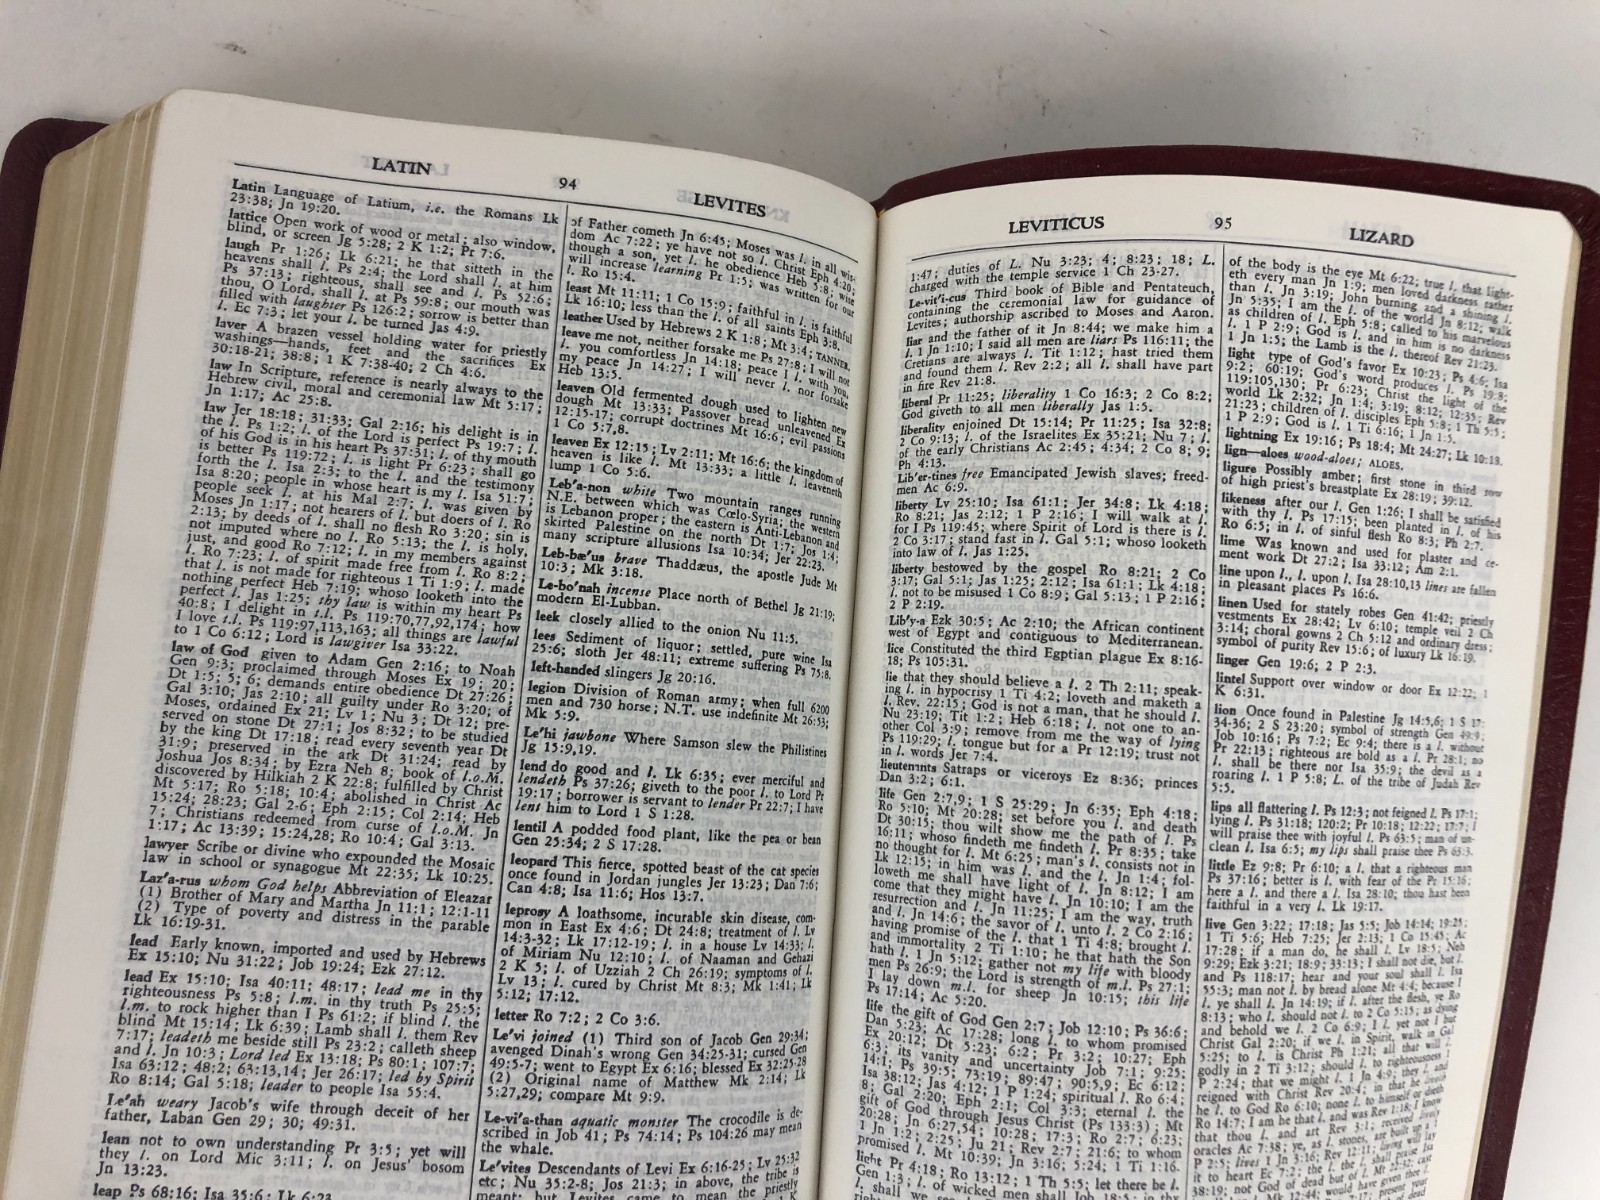 LATIN 94 LEVITES
Latin Language of Latium, i.e. the Romans Lk
23:38; Jn 19:20.
lattice Open work of wood or metal; also window,
blind, or screen Jg 5:28; 2 K 1:2; Pr 7:6.
laugh Pr 1:26; Lk 6:21; he that sitteth in the
heavens shall l. Ps 2:4; the Lord shall l. at him
Ps 37:13; righteous, shall see and l. Ps 52:6;
thou, O Lord, shall l. at Ps 59:8; our mouth was
filled with laughter Ps 126:2; sorrow is better than
l. Ec 7:3; let your l. be turned Jas 4:9.
laver A brazen vessel holding water for priestly
washings—hands, feet and the sacrifices Ex
30:18-21; 38:8; 1 K 7:38-40; 2 Ch 4:6.
law In Scripture, reference is nearly always to the
Hebrew civil, moral and ceremonial law Mt 5:17;
Jn 1:17; Ac 25:8.
law Jer 18:18; 31:33; Gal 2:16; his delight is in
the l. Ps 1:2; l. of the Lord is perfect Ps 19:7; l.
of his God is in his heart Ps 37:31; l. of thy mouth
is better Ps 119:72; l. is light Pr 6:23; shall go
forth the l. Isa 2:3; to the l. and the testimony
Isa 8:20; people in whose heart is my l. Isa 51:7;
people seek l. at his Mal 2:7; l. was given by
Moses Jn 1:17; not hearers of l. but doers of l. Ro
2:13; by deeds of l. shall no flesh Ro 3:20; sin is
not imputed where no l. Ro 5:13; the l. is holy,
just, and good Ro 7:12; l. in my members against
l. Ro 7:23; l. of spirit made free from l. Ro 8:2;
that l. is not made for righteous 1 Ti 1:9; l. made
nothing perfect Heb 7:19; whoso looketh into the
perfect l. Jas 1:25; thy law is within my heart Ps
40:8; I delight in t.l. Ps 119:70,77,92,174; how
I love t.l. Ps 119:97,113,163; all things are lawful
to 1 Co 6:12; Lord is lawgiver Isa 33:22.
law of God given to Adam Gen 2:16; to Noah
Gen 9:3; proclaimed through Moses Ex 19; 20;
Dt 1:5; 5; 6; demands entire obedience Dt 27:26;
Gal 3:10; Jas 2:10; all guilty under Ro 3:20; of
Moses, ordained Ex 21; Lv 1; Nu 3; Dt 12; pre-
served on stone Dt 27:1; Jos 8:32; to be studied
by the king Dt 17:18; read every seventh year Dt
31:9; preserved in the ark Dt 31:24; read by
Joshua Jos 8:34; by Ezra Neh 8; book of l.o.M.
discovered by Hilkiah 2 K 22:8; fulfilled by Christ
Mt 5:17; Ro 5:18; 10:4; abolished in Christ Ac
15:24; 28:23; Gal 2-6; Eph 2:15; Col 2:14; Heb
7; Christians redeemed from curse of l.o.M. Jn
1:17; Ac 13:39; 15:24,28; Ro 10:4; Gal 3:13.
lawyer Scribe or divine who expounded the Mosaic
law in school or synagogue Mt 22:35; Lk 10:25.
Laz'a-rus whom God helps Abbreviation of Eleazar
(1) Brother of Mary and Martha Jn 11:1; 12:1-11
(2) Type of poverty and distress in the parable
Lk 16:19-31.
lead Early known, imported and used by Hebrews
Ex 15:10; Nu 31:22; Job 19:24; Ezk 27:12.
lead Ex 15:10; Isa 40:11; 48:17; lead me in thy
righteousness Ps 5:8; l.m. in thy truth Ps 25:5;
l.m. to rock higher than I Ps 61:2; if blind l. the
blind Mt 15:14; Lk 6:39; Lamb shall l. them Rev
7:17; leadeth me beside still Ps 23:2; calleth sheep
and l. Jn 10:3; Lord led Ex 13:18; Ps 80:1; 107:7;
Isa 63:12; 48:2; 63:13,14; Jer 26:17; led by Spirit
Ro 8:14; Gal 5:18; leader to people Isa 55:4.
Le'ah weary Jacob's wife through deceit of her
father, Laban Gen 29; 30; 49:31.
lean not to own understanding Pr 3:5; yet will
they l. on Lord Mic 3:11; l. on Jesus' bosom
Jn 13:23.
leap Ps 68:16; Isa 35:6; Lk 6:23
of Father cometh Jn 6:45; Moses was l. in all wis-
dom Ac 7:22; ye have not so l. Christ Eph 4:20;
though a son, yet l. he obedience Heb 5:8; wise
will increase learning Pr 1:5; was written for our
l. Ro 15:4.
least Mt 11:11; 1 Co 15:9; faithful in l. is faithful
Lk 16:10; less than the l. of all saints Eph 3:8.
leather Used by Hebrews 2 K 1:8; Mt 3:4; TANNER.
leave me not, neither forsake me Ps 27:8; I will not
l. you comfortless Jn 14:18; peace I l. with you,
my peace Jn 14:27; I will never l. nor forsake
Heb 13:5.
leaven Old fermented dough used to lighten new
dough Mt 13:33; Passover bread unleavened Ex
12:15-17; corrupt doctrines Mt 16:6; evil passions
1 Co 5:7,8.
leaven Ex 12:15; Lv 2:11; Mt 16:6; the kingdom of
heaven is like l. Mt 13:33; a little l. leaveneth
lump 1 Co 5:6.
Leb'a-non white Two mountain ranges running
N.E. between which was Cœlo-Syria; the western
is Lebanon proper; the eastern is Anti-Lebanon and
skirted Palestine on the north Dt 1:7; Jos 1:4;
many scripture allusions Isa 10:34; Jer 22:23.
Leb-bæ'us brave Thaddæus, the apostle Jude Mt
10:3; Mk 3:18.
Le-bo'nah incense Place north of Bethel Jg 21:19;
modern El-Lubban.
leek closely allied to the onion Nu 11:5.
lees Sediment of liquor; settled, pure wine Isa
25:6; sloth Jer 48:11; extreme suffering Ps 75:8.
left-handed slingers Jg 20:16.
legion Division of Roman army; when full 6200
men and 730 horse; N.T. use indefinite Mt 26:53;
Mk 5:9.
Le'hi jawbone Where Samson slew the Philistines
Jg 15:9,19.
lend do good and l. Lk 6:35; ever merciful and
lendeth Ps 37:26; giveth to the poor l. to Lord Pr
19:17; borrower is servant to lender Pr 22:7; I have
lent him to Lord 1 S 1:28.
lentil A podded food plant, like the pea or bean
Gen 25:34; 2 S 17:28.
leopard This fierce, spotted beast of the cat species
once found in Jordan jungles Jer 13:23; Dan 7:6;
Can 4:8; Isa 11:6; Hos 13:7.
leprosy A loathsome, incurable skin disease, com-
mon in East Ex 4:6; Dt 24:8; treatment of l. Lv
14:3-32; Lk 17:12-19; l. in a house Lv 14:33; l.
of Miriam Nu 12:10; l. of Naaman and Gehazi
2 K 5; l. of Uzziah 2 Ch 26:19; symptoms of l.
Lv 13; l. cured by Christ Mt 8:3; Mk 1:41; Lk
5:12; 17:12.
letter Ro 7:2; 2 Co 3:6.
Le'vi joined (1) Third son of Jacob Gen 29:34;
avenged Dinah's wrong Gen 34:25-31; cursed Gen
49:5-7; went to Egypt Ex 6:16; blessed Ex 32:25-28
(2) Original name of Matthew Mk 2:14; Lk
5:27,29; compare Mt 9:9.
Le-vi'a-than aquatic monster The crocodile is de-
scribed in Job 41; Ps 74:14; Ps 104:26 may mean
the whale.
Le'vites Descendants of Levi Ex 6:16-25; Lv 25:32
etc; Nu 35:2-8; Jos 21:3; in above, the tribe is
meant; but Levites came to mean the priestly
LEVITICUS 95 LIZARD
1:47; duties of L. Nu 3:23; 4; 8:23; 18; L.
charged with the temple service 1 Ch 23-27.
Le-vit'i-cus Third book of Bible and Pentateuch,
containing the ceremonial law for guidance of
Levites; authorship ascribed to Moses and Aaron.
liar and the father of it Jn 8:44; we make him a
l. 1 Jn 1:10; I said all men are liars Ps 116:11; the
Cretians are always l. Tit 1:12; hast tried them
and found them l. Rev 2:2; all l. shall have part
in fire Rev 21:8.
liberal Pr 11:25; liberality 1 Co 16:3; 2 Co 8:2;
God giveth to all men liberally Jas 1:5.
liberality enjoined Dt 15:14; Pr 11:25; Isa 32:8;
2 Co 9:13; l. of the Israelites Ex 35:21; Nu 7; l.
of the early Christians Ac 2:45; 4:34; 2 Co 8; 9;
Ph 4:13.
Lib'er-tines free Emancipated Jewish slaves; freed-
men Ac 6:9.
liberty Lv 25:10; Isa 61:1; Jer 34:8; Lk 4:18;
Ro 8:21; Jas 2:12; 1 P 2:16; I will walk at l.
for I Ps 119:45; where Spirit of Lord is there is l.
2 Co 3:17; stand fast in l. Gal 5:1; whoso looketh
into law of l. Jas 1:25.
liberty bestowed by the gospel Ro 8:21; 2 Co
3:17; Gal 5:1; Jas 1:25; 2:12; Isa 61:1; Lk 4:18;
l. not to be misused 1 Co 8:9; Gal 5:13; 1 P 2:16;
2 P 2:19.
Lib'y-a Ezk 30:5; Ac 2:10; the African continent
west of Egypt and contiguous to Mediterranean.
lice Constituted the third Egptian plague Ex 8:16-
18; Ps 105:31.
lie that they should believe a l. 2 Th 2:11; speak-
ing l. in hypocrisy 1 Ti 4:2; loveth and maketh a
l. Rev. 22:15; God is not a man, that he should l.
Nu 23:19; Tit 1:2; Heb 6:18; l. not one to an-
other Col 3:9; remove from me the way of lying
Ps 119:29; l. tongue but for a Pr 12:19; trust not
in l. words Jer 7:4.
lieutemnts Satraps or viceroys Ez 8:36; princes
Dan 3:2; 6:1.
life Gen 2:7,9; 1 S 25:29; Jn 6:35; Eph 4:18;
Ro 5:10; Mt 20:28; set before you l. and death
Dt 30:15; thou wilt show me the path of l. Ps
16:11; whoso findeth me findeth l. Pr 8:35; take
no thought for l. Mt 6:25; man's l. consists not in
Lk 12:15; in him was l. and the l. Jn 1:4; fol-
loweth me shall have light of l. Jn 8:12; I am
come that they might have l. Jn 10:10; I am the
resurrection and l. Jn 11:25; I am the way, truth
and l. Jn 14:6; the savor of l. unto l. 2 Co 2:16;
having promise of the l. that 1 Ti 4:8; brought l.
and immortality 2 Ti 1:10; he that hath the Son
hath l. 1 Jn 5:12; gather not my life with bloody
men Ps 26:9; the Lord is strength of m.l. Ps 27:1;
I lay down m.l. for sheep Jn 10:15; this life
Ps 17:14; Ac 5:20.
life the gift of God Gen 2:7; Job 12:10; Ps 36:6;
Dan 5:23; Ac 17:28; long l. to whom promised
Ex 20:12; Dt 5:23; 6:2; Pr 3:2; 10:27; Eph
6:3; its vanity and uncertainty Job 7:1; 9:25;
14:1; Ps 39:5; 73:19; 89:47; 90:5,9; Ec 6:12;
Isa 38:12; Jas 4:12; 1 P 1:24; spiritual l. Ro 6:4;
8; Gal 2:20; Eph 2:1; Col 3:3; eternal l. the
gift of God through Jesus Christ (Ps 133:3); Mt
20:28; Jn 6:27,54; 10:28; 17:3; Ro 2:7; 6:23;
1 Jn 1:2; 2:25; Ju 21; Rev 2:7; 21:6; to whom
promised l. Mt 10:39; Jn 3:16; 5:24; 1 Ti 1:16.
light Pr 4:18; Ro 13:12; 1 Th 5:5; let there be l.
Gen 1:3; l. of wicked men shall Job 18:5; in thy
l. shall we see
of the body is the eye Mt 6:22; true l. that light-
eth every man Jn 1:9; men loved darkness rather
than l. Jn 3:19; John burning and a shining l.
Jn 5:35; I am the l. of the world Jn 8:12; walk
as children of l. Eph 5:8; called to his marvelous
l. 1 P 2:9; God is l. and in him is no darkness
1 Jn 1:5; the Lamb is the l. thereof Rev 21:23.
light type of God's favor Ex 10:23; Ps 4:6; Isa
9:2; 60:19; God's word produces l. Ps 19:8;
119:105,130; Pr 6:23; Christ the light of the
world Lk 2:32; Jn 1:4; 3:19; 8:12; 12:35; Rev
21:23; children of l. disciples Eph 5:8; 1 Th 5:5;
1 P 2:9; God is l. 1 Ti 6:16; 1 Jn 1:5.
lightning Ex 19:16; Ps 18:4; Mt 24:27; Lk 10:18.
lign—aloes wood-aloes; ALOES.
ligure Possibly amber; first stone in third row
of high priest's breastplate Ex 28:19; 39:12.
likeness after our l. Gen 1:26; I shall be satisfied
with thy l. Ps 17:15; been planted in l. of his
Ro 6:5; in l. of sinful flesh Ro 8:3; Ph 2:7.
lime Was known and used for plaster and ce-
ment work Dt 27:2; Isa 33:12; Am 2:1.
line upon l., l. upon l. Isa 28:10,13 lines are fallen
in pleasant places Ps 16:6.
linen Used for stately robes Gen 41:42; priestly
vestments Ex 28:42; Lv 6:10; temple veil 2 Ch
3:14; choral gowns 2 Ch 5:12 and ordinary dress;
symbol of purity Rev 15:6; of luxury Lk 16:19.
linger Gen 19:6; 2 P 2:3.
lintel Support over window or door Ex 12:22; 1
K 6:31.
lion Once found in Palestine Jg 14:5,6; 1 S 17:
34-36; 2 S 23:20; symbol of strength Gen 49:9;
Job 10:16; Ps 7:2; Ec 9:4; there is a l. without
Pr 22:13; righteous are bold as a l. Pr 28:1; no
l. shall be there nor Isa 35:9; the devil as a
roaring l. 1 P 5:8; L. of the tribe of Judah Rev
5:5.
lips all flattering l. Ps 12:3; not feigned l. Ps 17:1;
lying l. Ps 31:18; 120:2; Pr 10:18; 12:22; 17:7; I
will praise thee with joyful l. Ps 63:5; man of un-
clean l. Isa 6:5; my lips shall praise thee Ps 63:3.
little Ez 9:8; Pr 6:10; a l. that a righteous man
Ps 37:16; better is l. with fear of the Pr 15:16;
here a l. and there a l. Isa 28:10; thou hast been
faithful in a very l. Lk 19:17.
live Gen 3:22; 17:18; Jas 5:5; Job 14:14; 19:25;
1 Ti 5:6; Heb 7:25; Jer 2:13; 1 Co 15:45; Ac
17:28; if a man do, he shall l. Lv 18:5; Neh
9:29; Ezk 3:21; 18:9; 33:13; I shall not die, but l.
and Ps 118:17; hear and your soul shall l. Isa
55:3; man not l. by bread alone Mt 4:4; because I
l. ye shall l. Jn 14:19; if l. after the flesh, ye Ro
8:13; who l. should not l. to 2 Co 5:15; as dying
and behold we l. 2 Co 6:9; I l. yet not I but
Christ Gal 2:20; if we l. in Spirit, walk in Gal
5:25; to l. is Christ Ph 1:21; all that will l.
godly in 2 Ti 3:12; should l. to righteousness 1
P 2:24; that we might l. 1 Jn 4:9; they l. and
reigned with Christ Rev 20:4; in that he liveth
he l. to God Ro 6:10; none l. to himself or dieth
Ro 14:7; I am he that l. and was Rev 1:18; I know
that thou l. and art Rev 3:1; received lively
oracles Ac 7:38; ye, as l. stones, are built up 1
P 2:5; lives 1 Jn 3:16; Rev 12:11;
it to heart Ec 7:2; the l. the l. shall praise Isa
38:19; not God of dead but of l. Mt 22:32; cast